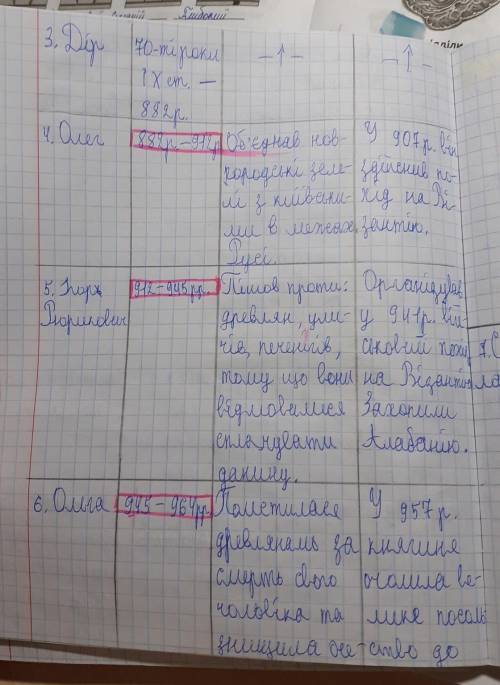 3. Дір
70-ті роки
ІХ ст. –
882р.
–↑–
–↑–
4. Олег
882р–912р
Об'єднав нов-
городські зем-
лі з київськи-
ми в межах
Русі.
У 907р. він
здійснив по-
хід на Ві-
зантію.
5. Ігорь
Рюрикович
912–945рр.
Пішов проти:
древлян, ули-
чів, печенігів,
тому що вони
відмовлялися
сплачувати
данину.
Організував
у 941р. вій-
ськовий похід
на Візантію
Захопили
6. Ольга
945–964рр
Помстилася
древлянамь за
смерть свого
чоловіка та
знищила
У 957р.
княгиня
очолила ве-
лике посоль
ство до